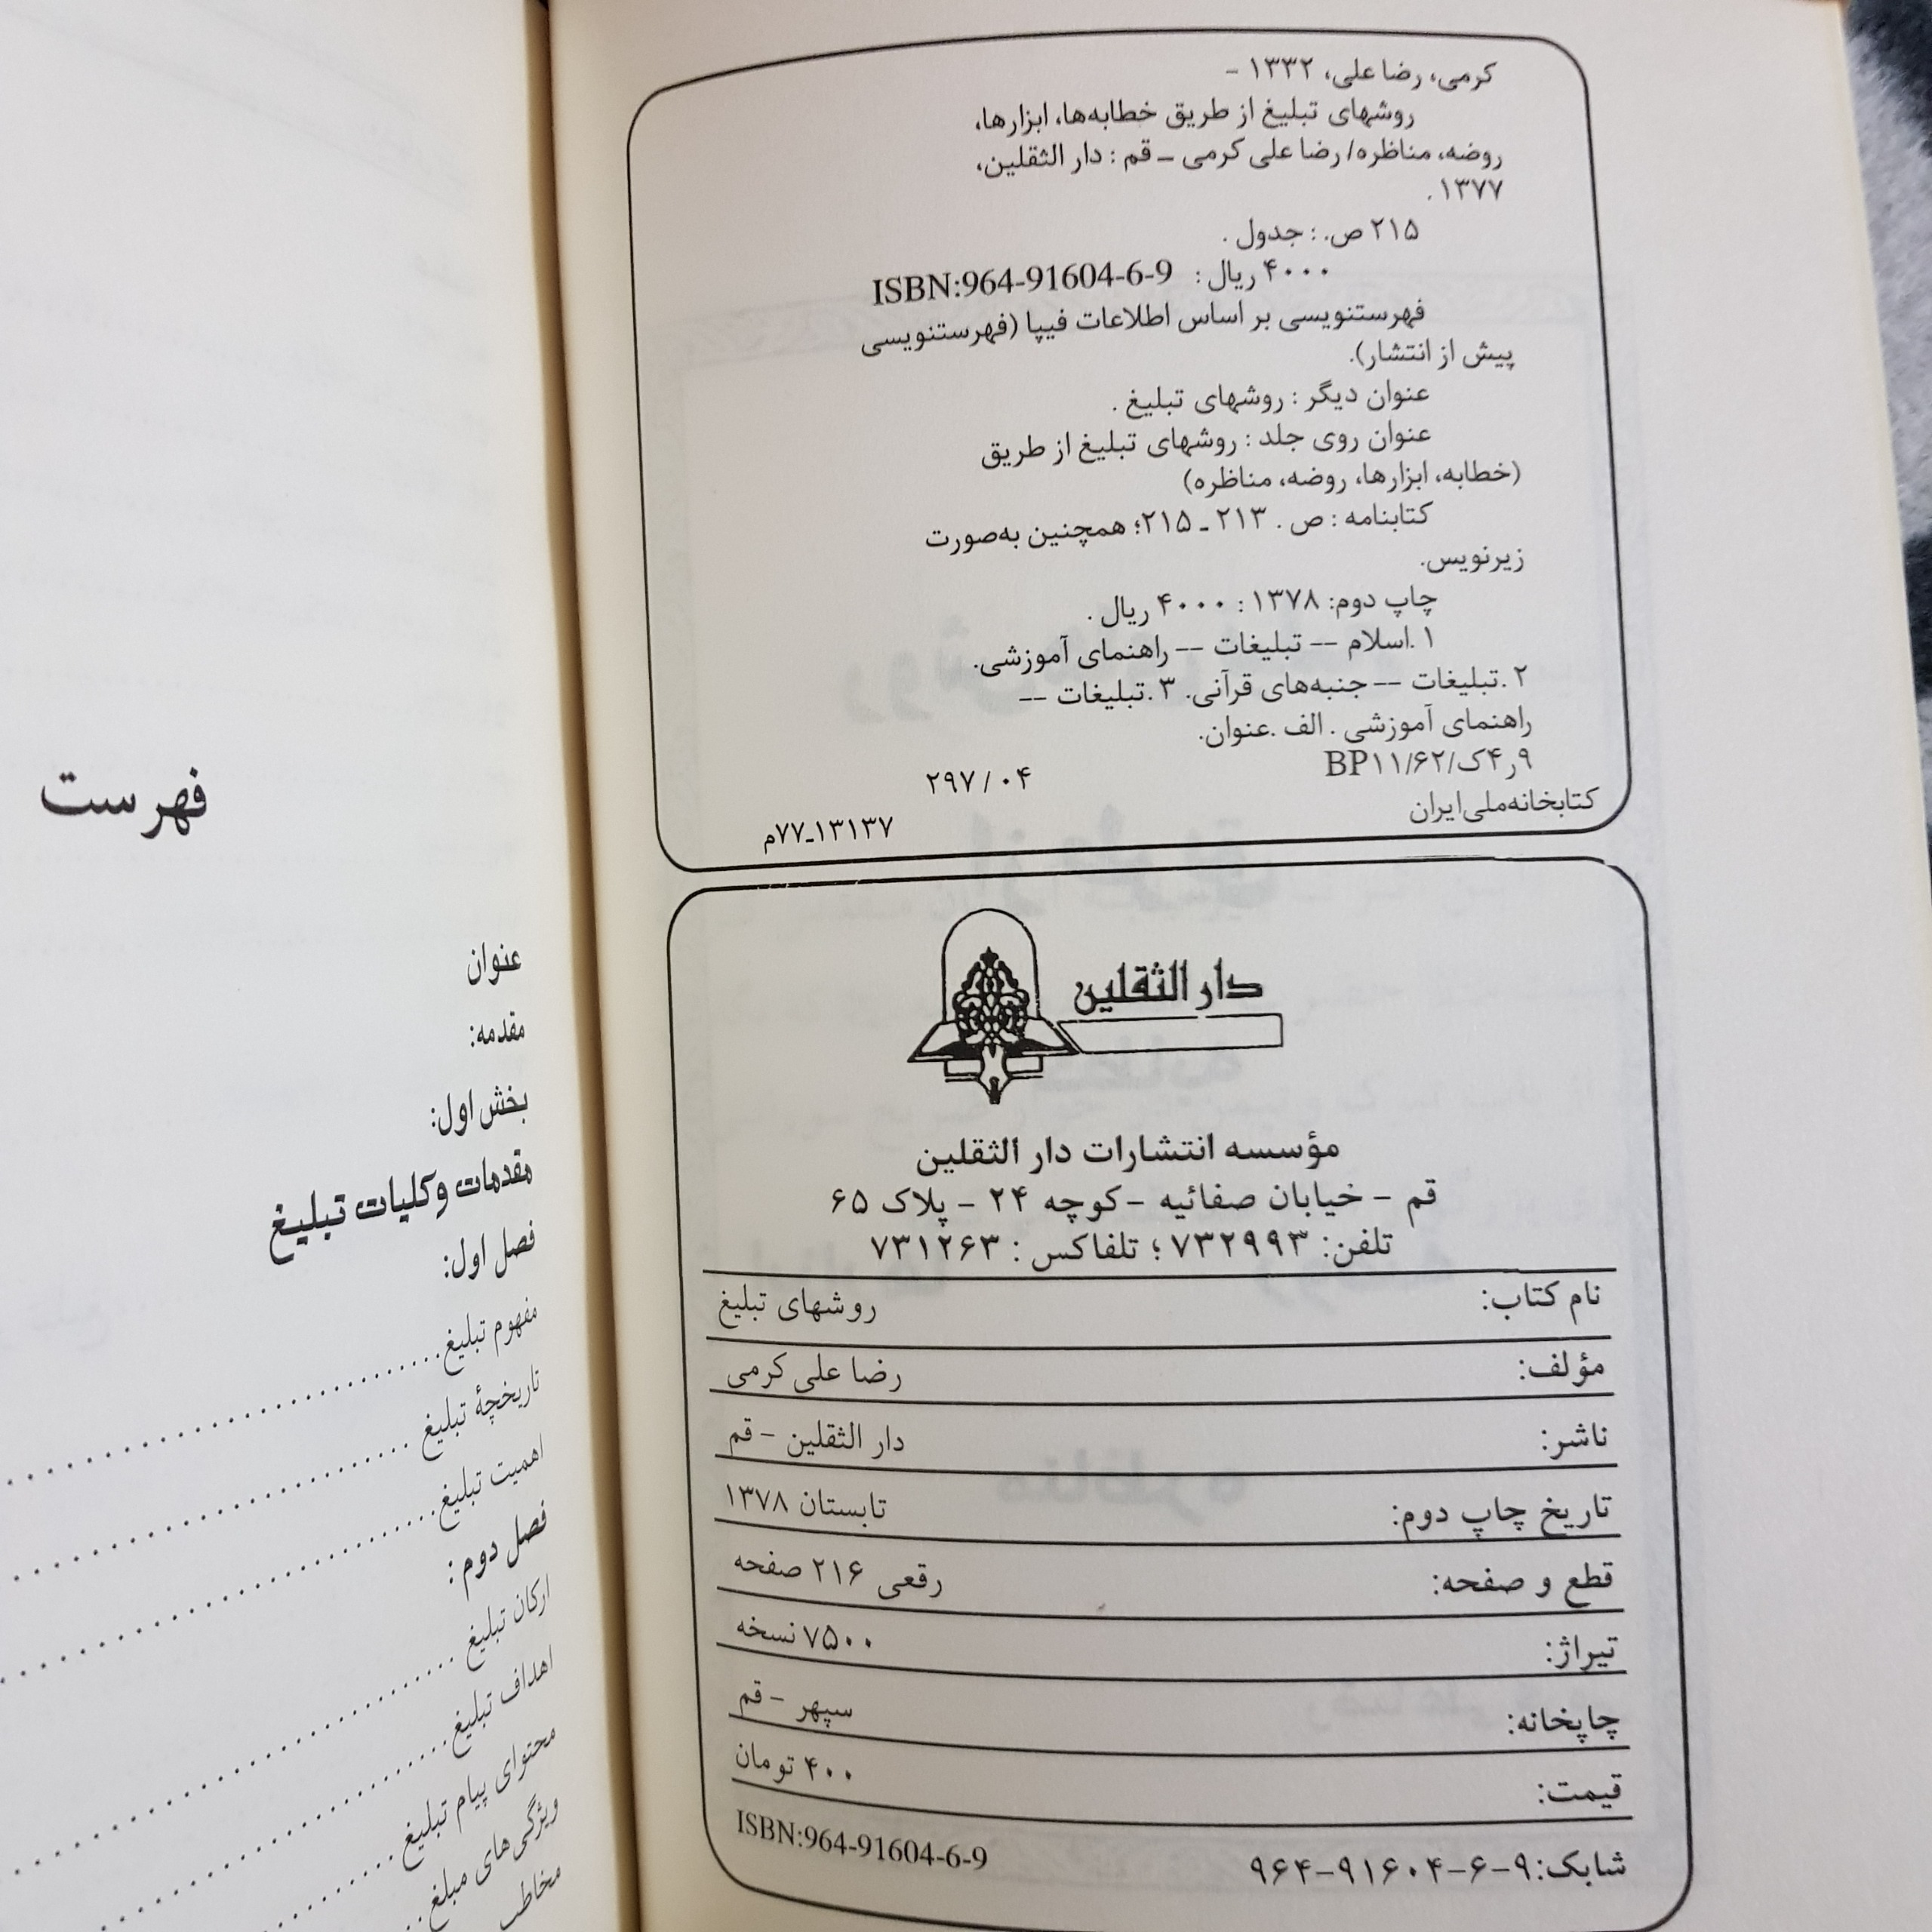 کرمی، رضا علی، ۱۳۳۲ -
روشهای تبلیغ از طریق خطابه‌ها، ابزارها،
روضه، مناظره/ رضا علی کرمی ـ قم : دار الثقلین،
۱۳۷۷ .
۲۱۵ ص. : جدول .
۴۰۰۰ ریال : ISBN:964-91604-6-9
فهرستنویسی بر اساس اطلاعات فیپا (فهرستنویسی
پیش از انتشار).
عنوان دیگر : روشهای تبلیغ .
عنوان روی جلد : روشهای تبلیغ از طریق
(خطابه، ابزارها، روضه، مناظره)
کتابنامه : ص . ۲۱۳ ـ ۲۱۵؛ همچنین به‌صورت
زیرنویس.
چاپ دوم: ۱۳۷۸ : ۴۰۰۰ ریال .
۱ .اسلام -- تبلیغات -- راهنمای آموزشی.
۲ .تبلیغات -- جنبه‌های قرآنی. ۳ .تبلیغات --
راهنمای آموزشی . الف .عنوان.
۹ر۴ک/BP۱۱/۶۲
۲۹۷/۰۴
کتابخانه‌ملی‌ایران
۱۳۱۳۷-۷۷م
دار الثقلین
مؤسسه انتشارات دار الثقلین
قم - خیابان صفائیه - کوچه ۲۴ - پلاک ۶۵
تلفن: ۷۳۲۹۹۳ ؛ تلفاکس : ۷۳۱۲۶۳
نام کتاب: روشهای تبلیغ
مؤلف: رضا علی کرمی
ناشر: دار الثقلین - قم
تاریخ چاپ دوم: تابستان ۱۳۷۸
قطع و صفحه: رقعی ۲۱۶ صفحه
تیراژ: ۷۵۰۰ نسخه
چاپخانه: سپهر - قم
قیمت: ۴۰۰ تومان
شابک:۹-۶-۹۱۶۰۴-۹۶۴ ISBN:964-91604-6-9
فهرست
عنوان
مقدمه:
بخش اول:
مقدمات و کلیات تبلیغ
فصل اول:
مفهوم تبلیغ
تاریخچهٔ تبلیغ
اهمیت تبلیغ
فصل دوم :
ارکان تبلیغ
اهداف تبلیغ
محتوای پیام تبلیغ
ویژگی‌های مبلغ
مخاطب